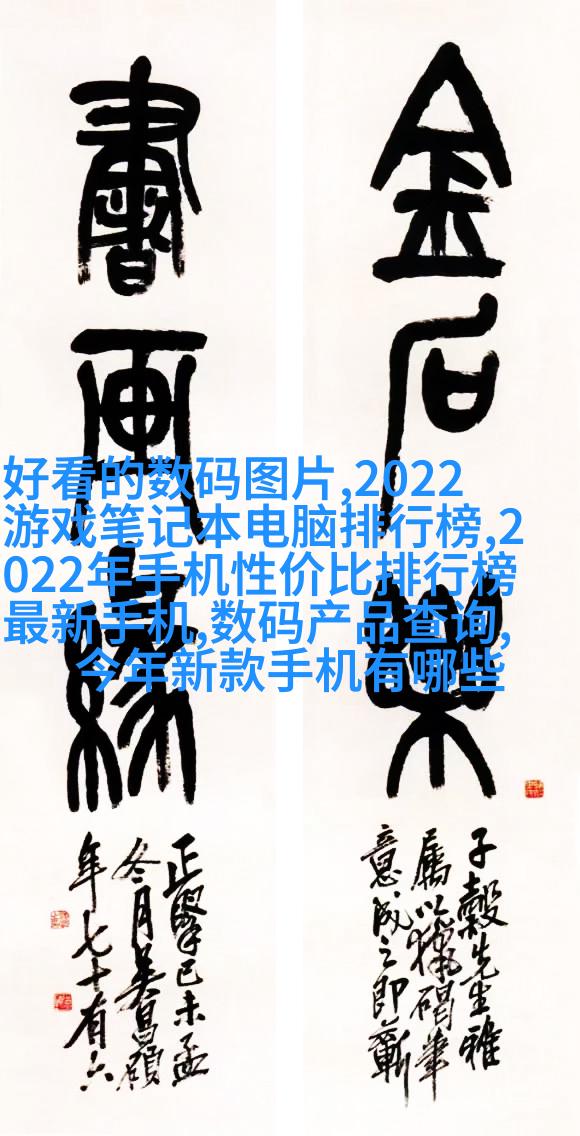 金石樂
書画緣
子穀先生雅
屬以獵碣筆
意成之即蘄
正擘己未孟
冬月吴昌碩
年七十有六
好看的数码图片,2022
游戏笔记本电脑排行榜,2
022年手机性价比排行榜
最新手机,数码产品查询,
今年新款手机有哪些